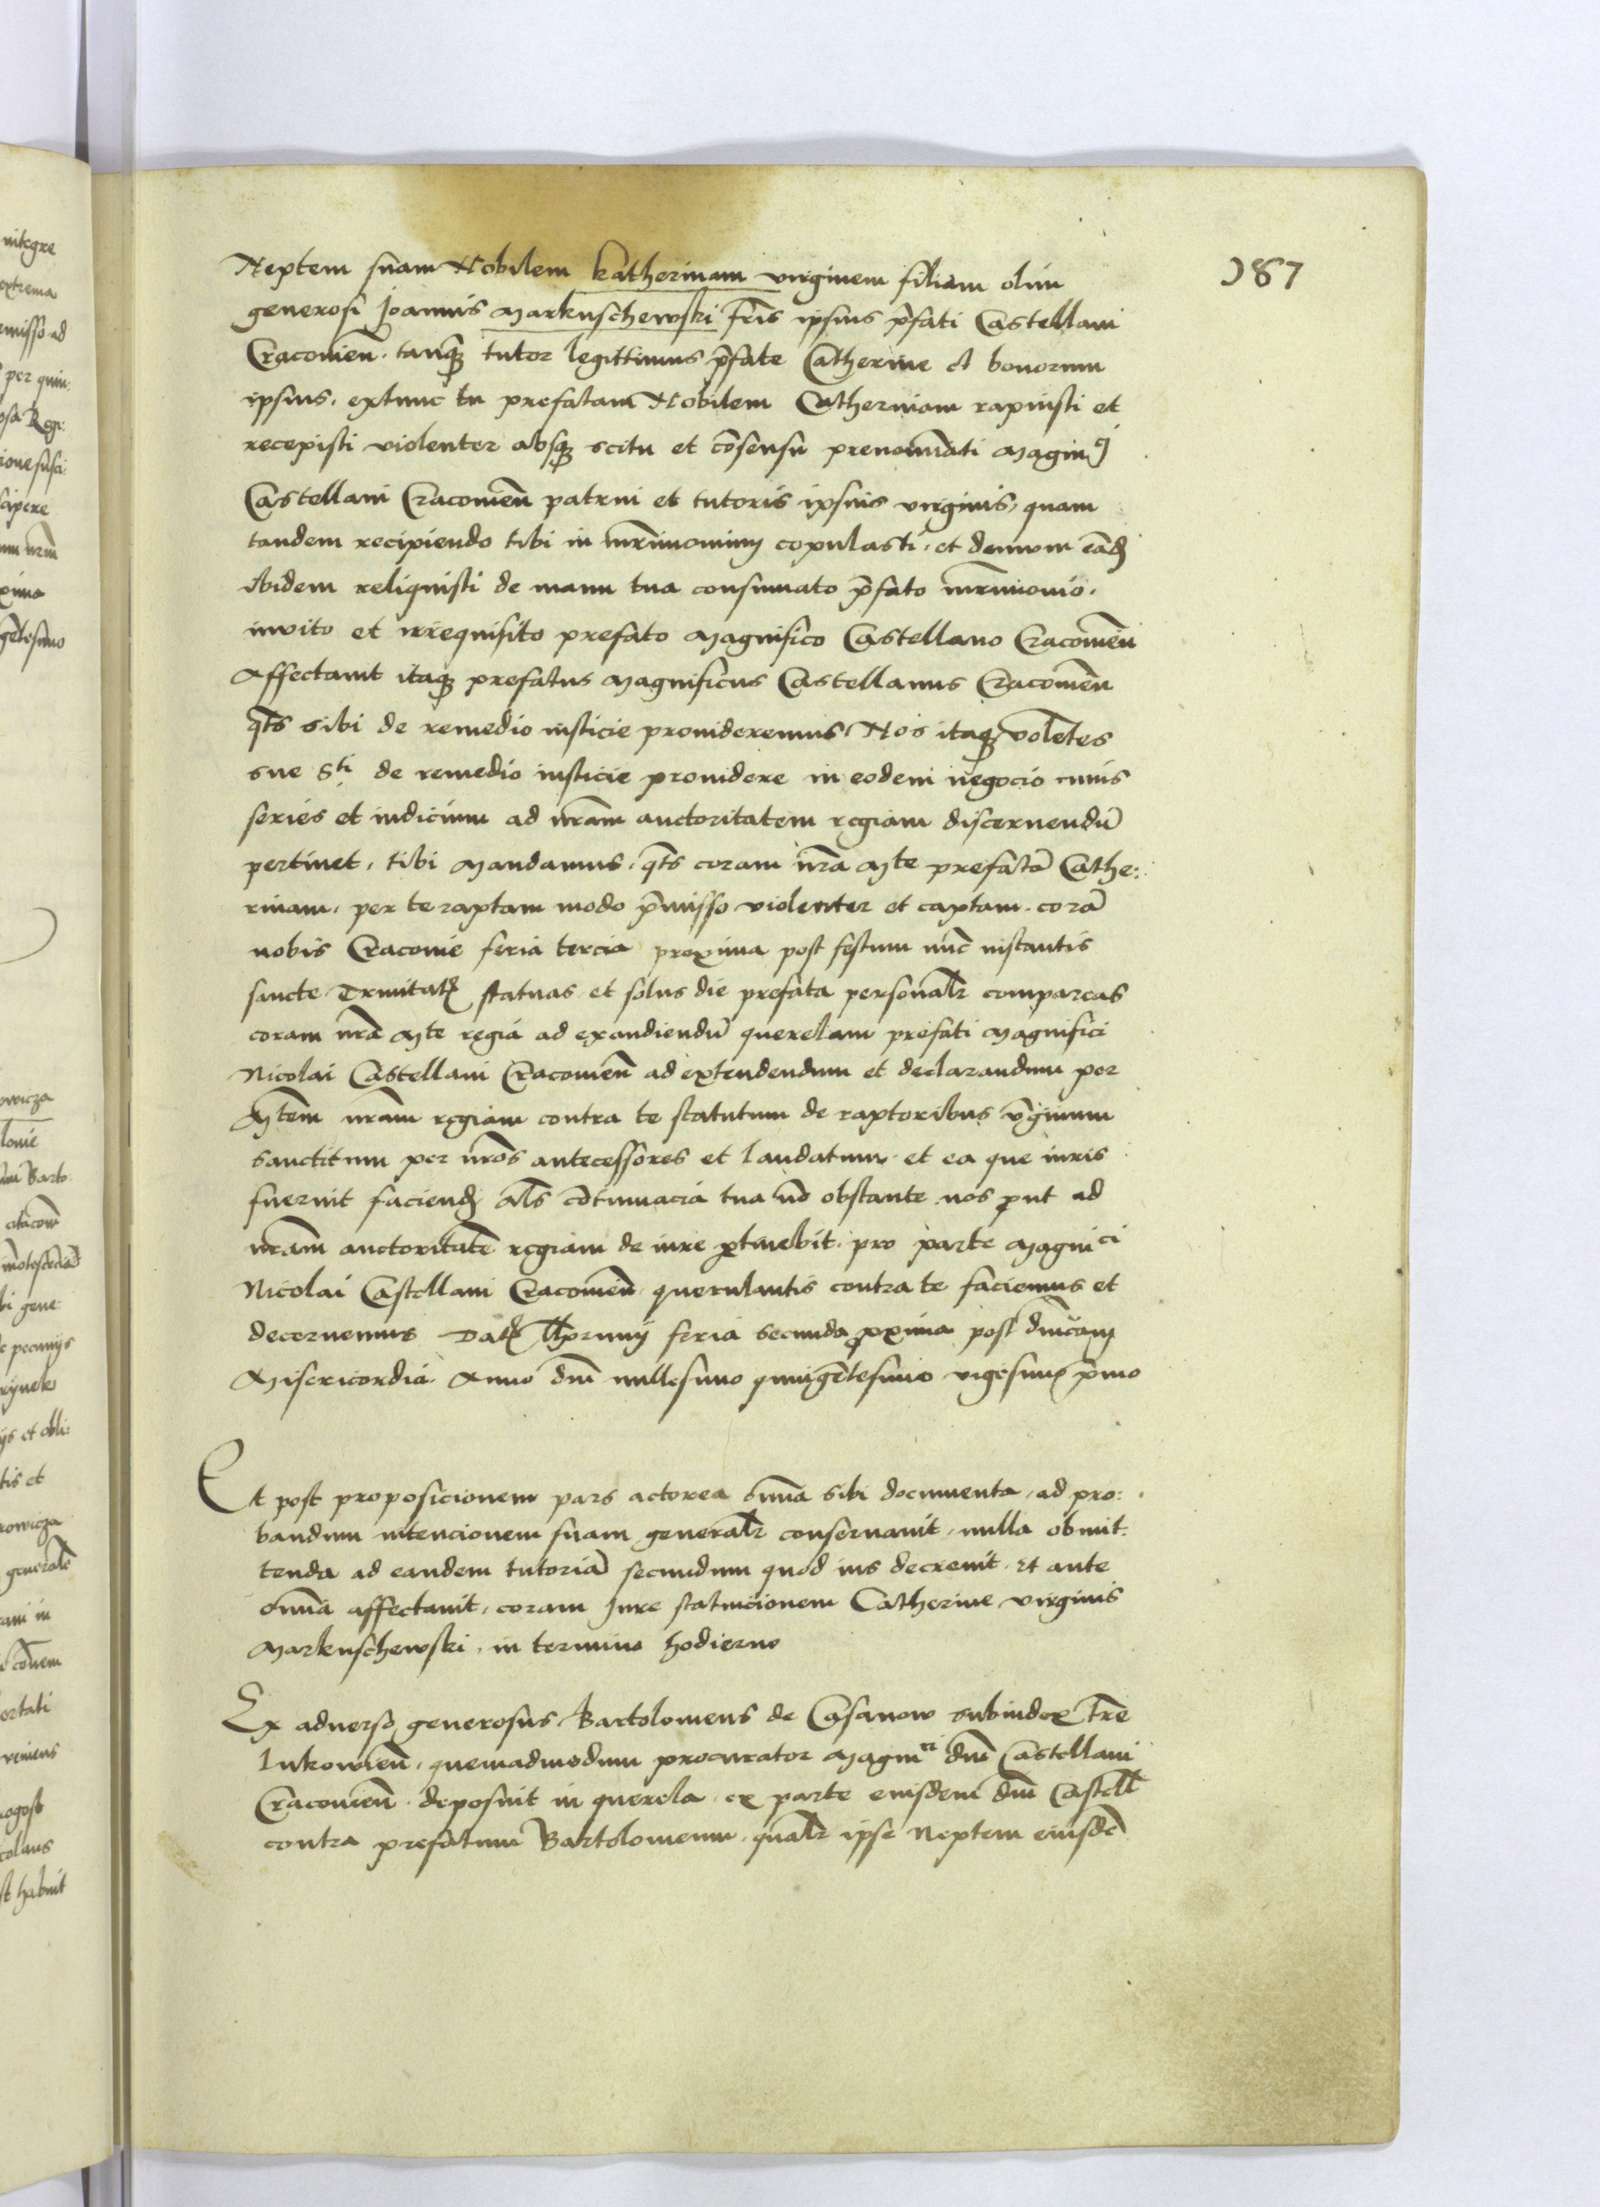 187
Neptem suam Nobilem Katherinam virginem filiam olim
generosi Joannis Markuschewski fris ipsius pfati Castellani
Cracovien. tanq tutor legittimus pfate Catherine et bonorum
ipsius, extunc tu prefatam Nobilem Catherinam rapuisti et
recepisti violenter absq scitu et cosensu prenominati Magnici
Castellani Cracovien patrui et tutoris ipsius virginis, quam
tandem recipiendo tibi in mrimonium copulasti, et demum ead
ibidem reliquisti de manu tua consumato pfato mrimonio.
invito et irrequisito prefato Magnifico Castellano Cracovien
Affectavit itaq prefatus Magnificus Castellanus Cracovien
qts sibi de remedio iusticie provideremus, Nos itaq voletes
sue Sti de remedio iusticie providere in eodem negocio cuius
series et iudicium ad nram auctoritatem regiam discernendu
pertinet, tibi Mandamus, qts coram nra Mte prefata Cathe:
rinam, per te raptam modo pmisso violenter et captam. cora
nobis Cracovie feria tercia proxima post festum nuc instantis
sancte Trinitatis statuas et solus die prefata personalr compareas
coram nra Mte regia ad exaudiendu querelam prefati Magnifici
Nicolai Castellani Cracovien ad extendendum et declarandum per
Mtem nram regiam contra te statutum de raptoribus virginum
sanctitum per nros antecessores et laudatum et ea que iuris
fuerint faciend Als cotumacia tua no obstante nos put ad
nram auctoritate regiam de iure ptinebit, pro parte Magnici
Nicolai Castellani Cracovien querulantis contra te faciemus et
decernemus Dat Thorunij feria secunda pxima post dnicam
Misericordia Anno dni millesimo quingetesimo vigesimo pmo
Et post proposicionem pars actorea omnia sibi documenta, ad pro:
bandum intencionem suam generalr conservavit, nulla obmit:
tenda ad eandem tutoria secundum quod ius decrevit. Et ante
omnia affectavit, coram Jure statuicionem Catherine virginis
Markuschewski, in termino hodierno
Ex adverso generosus Bartolomeus de Casanow subiudex Tre
Lukovien, quemadmodum procurator Magnici dni Castellani
Cracovien. deposuit in querela ex parte eiusdem dni Castell
contra prefatum Bartolomeum, qualr ipse Neptem eiusde